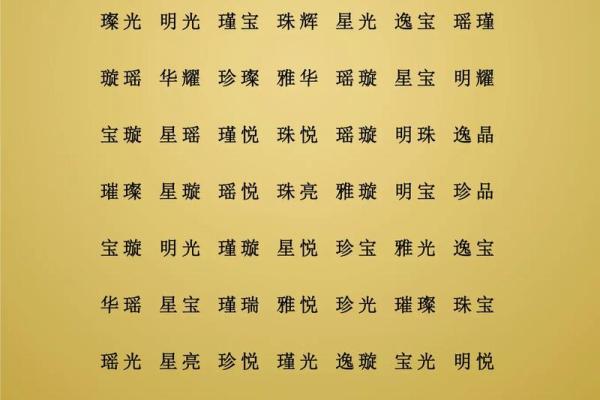 璨光 明光 瑾宝 珠辉 星光 逸宝 瑶瑾
璇瑶 华耀 珍璨 雅华 瑶璇 星宝 明耀
宝璇 星瑶 瑾悦 珠悦 瑶璇 明珠 逸晶
璀璨 星璇 瑶悦 珠亮 雅璇 明宝 珍品
宝璇 明光 瑾璇 星悦 珍宝 雅光 逸宝
华瑶 星宝 瑾瑞 雅悦 珍光 璀璨 珠宝
瑶光 星亮 珍悦 瑾光 逸璇 宝光 明悦